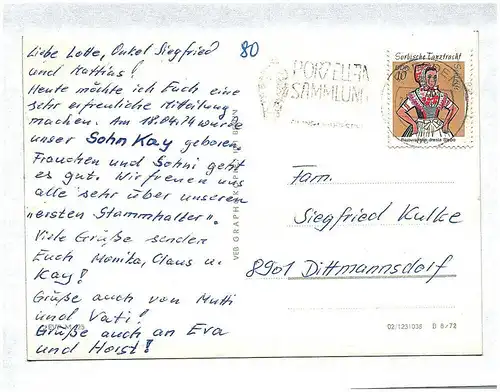 Liebe Lotte, Onkel Siegfried
und Mattias!
Heute möchte ich Euch eine
sehr erfreuliche Mitteilung
machen. Am 18.04.74 wurde
unser Sohn Kay geboren.
Frauchen und Sohni geht
es gut. Wir freuen uns
alle sehr über unseren
"ersten Stammhalter".
Viele Grüße senden
Euch Monika, Claus u.
Kay!
Grüße auch von Mutti
und Vati!
Grüße auch an Eva
und Horst!
80
PORZELLAN
SAMMLUNG
Sorbische Tanztracht
10
DDR
Fam.
Siegfried Kulke
8901 Dittmannsdorf
VEB GRAPH
02/1231038 B 8/72